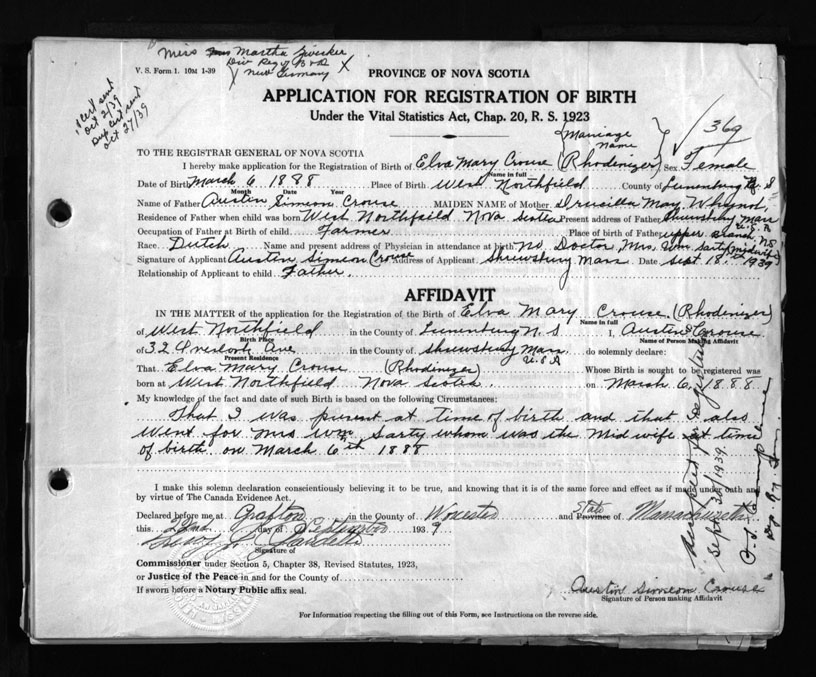 Miss Martha Zwicker
Div Reg of B & D
V. S. Form 1. 10M 1-39
X New Germany X
1 cert sent
Oct 2/39
Dup cert sent
Oct 27/39
PROVINCE OF NOVA SCOTIA
APPLICATION FOR REGISTRATION OF BIRTH
Under the Vital Statistics Act, Chap. 20, R. S. 1923
Marriage name
369
TO THE REGISTRAR GENERAL OF NOVA SCOTIA
I hereby make application for the Registration of Birth of Elva Mary Crouse (Rhodenizer) Sex Female
Name in full
Date of Birth March 6 1888 Place of Birth West Northfield County of Lunenburg N. S
Month Date Year
Name of Father Austin Simeon Crouse MAIDEN NAME of Mother Drusilla May Whynot
Residence of Father when child was born West Northfeild Nova Scotia Present address of Father Shrewsbury Mass U. S. A
Occupation of Father at Birth of child Farmer Place of birth of Father upper Branch, NS
Race Dutch Name and present address of Physician in attendance at birth No Doctor Mrs. Wm Sarty (midwife)
Signature of Applicant Austin Simeon Crouse Address of Applicant Shrewsbury Mass Date Sept 18, 1939
Relationship of Applicant to child Father.
AFFIDAVIT
IN THE MATTER of the application for the Registration of the Birth of Elva Mary Crouse (Rhodenizer)
Name in full
of West Northfield in the County of Lunenburg N. S I, Austin S Crouse
Birth Place Name of Person Making Affidavit
of 32 Ave in the County of Shrewsbury Mass U S A do solemnly declare:
Present Residence
That Elva Mary Crouse (Rhodenizer) Whose Birth is sought to be registered was
born at West Northfield Nova Scotia. on March 6, 1888.
My knowledge of the fact and date of such Birth is based on the following Circumstances:
That I was present at time of birth and that I also
went for Mrs Wm Sarty whom was the Mid wife at time
of birth on March 6th 1888
I make this solemn declaration conscientiously believing it to be true, and knowing that it is of the same force and effect as if made under oath and
by virtue of The Canada Evidence Act.
Declared before me at Grafton in the County of Worcester and State Province of Massachusetts
this 22nd day of September 1939
Signature of
Commissioner under Section 5, Chapter 38, Revised Statutes, 1923,
or Justice of the Peace in and for the County of
If sworn before a Notary Public affix seal.
Austin Simeon Crouse
Signature of Person making Affidavit
For Information respecting the filling out of this Form, see Instructions on the reverse side.
Accepted for registration
Sept 30/1939.
Dep. Reg. Gen.